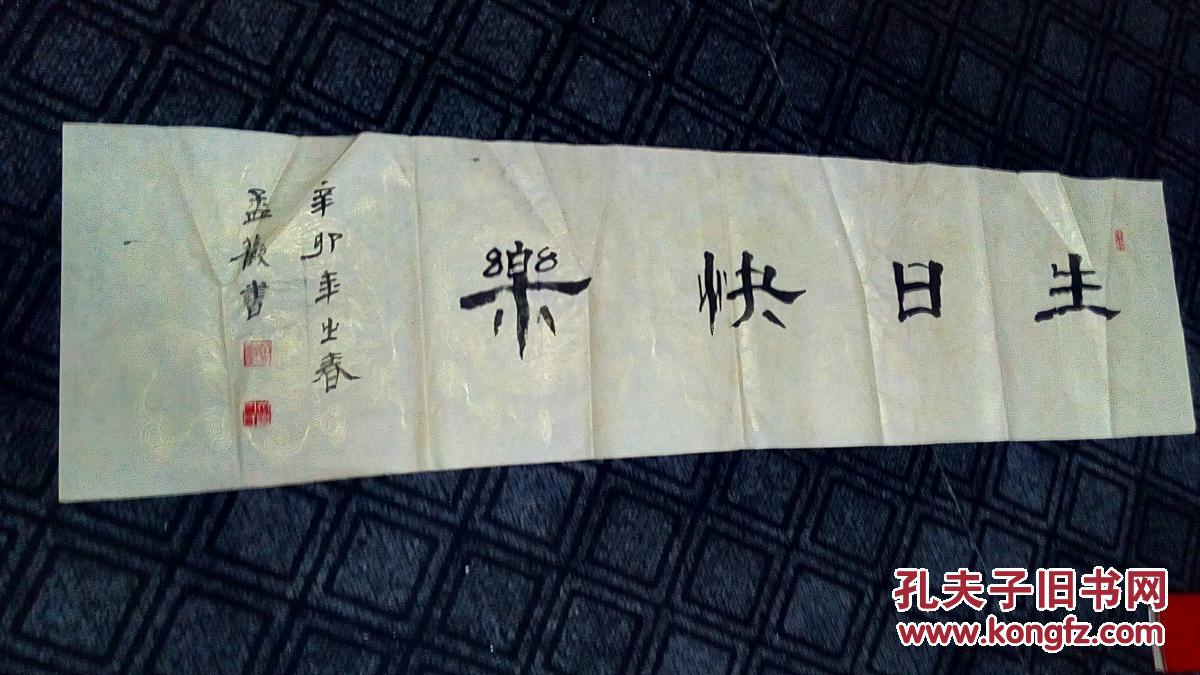 生日快樂
辛卯年之春
孟欣書
孔夫子旧书网
www.kongfz.com